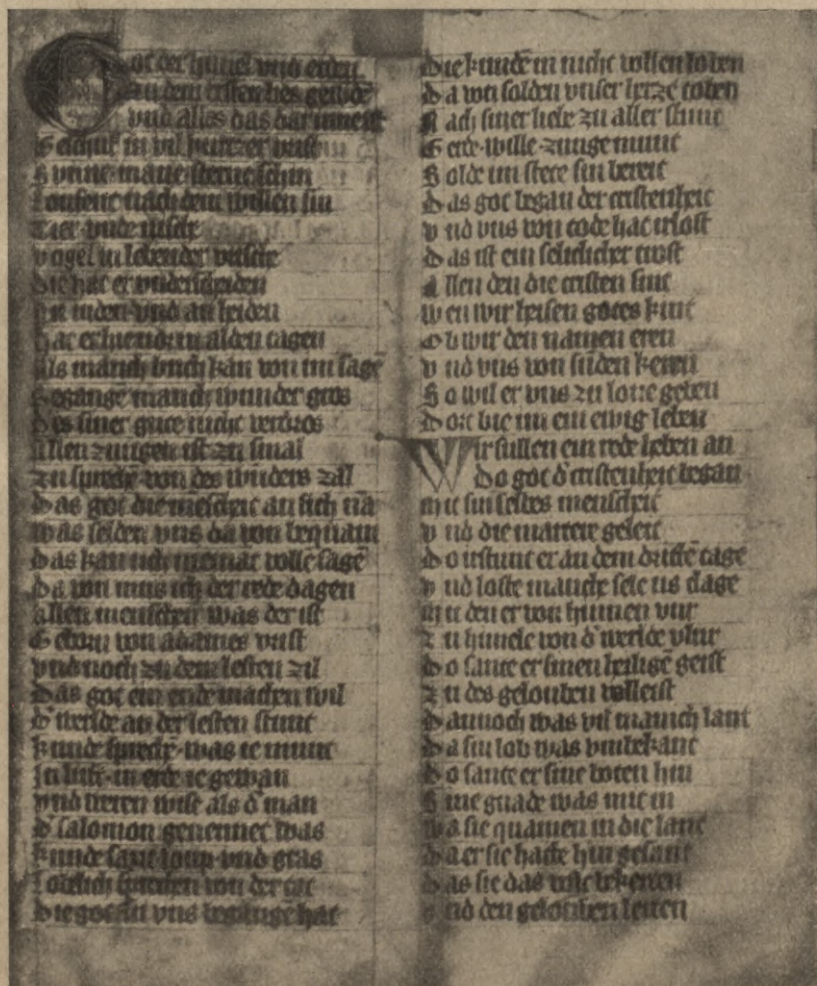 Got der himel vnd erden
An dem ersten hies gewdē
vnd alles das dar inne ist
Geschuf in vil kurtzer vrist
Sunne mane sterne schin
Loufent nach dem willen sin
Tier vnde vische
vogel in lebender vrische
die hat er vnderscheiden
An iuden vnd an heiden
hat er hie vor in alden tagen
Als manich buch kan von im sagē
Begangē manich wunder gros
Des siner gute nicht verdros
Allen zungen ist zu smal
zu sprechē von des wunders zal
Das got die mēscheit an sich nā
Was selden vns da von bequam
das kan uch niemāt volle sagē
Da von mus ich der rede dagen
Allen menschen was der ist
Geborn von adames vrist
vnd noch zu dem lesten zil
Das got ein ende machen wil
d' werlde an der lesten stunt
kunde spreche was ie munt
In luft in erde ie gewan
vnd weren wise als d' man
d' salomon genennet was
kunde sant loup vnd gras
Loblich sprechen von der tat
Die got an vns begangē hat
Die kundē in nicht vollen loben
Da von solden vnser herze toben
Nach siner liebe zu aller stunt
Gerde wille zunge munt
Solde im stete sin bereit
Das got began der cristenheit
vnd vns von tode hat irlost
das ist ein selicher trost
Allen den die cristen sint
wen wir heisen gotes kint
Ob wir den namen eren
vnd vns von sunden keren
So wil er vns zu lone geben
Dort bie im ein ewig leben
Wir sullen ein rede heben an
Do got d' cristenheit began
mit sin selbes menscheit
vnd die martere geleit
Do irstunt er an dem drittē tage
vnd loste manche sele us clage
mit den er von hinnen vur
zu himele von d' werlde vlur
Do sante er sinen heiligē geist
zu des gelouben volleist
Dannoch was vil manich lant
Da sin lob was vnbekant
Do sante er sine boten hin
Sine gnade was mit in
wa sie quamen in die lant
da er sie hatte hin gesant
das sie das volc bekerten
vnd den gelouben lerten